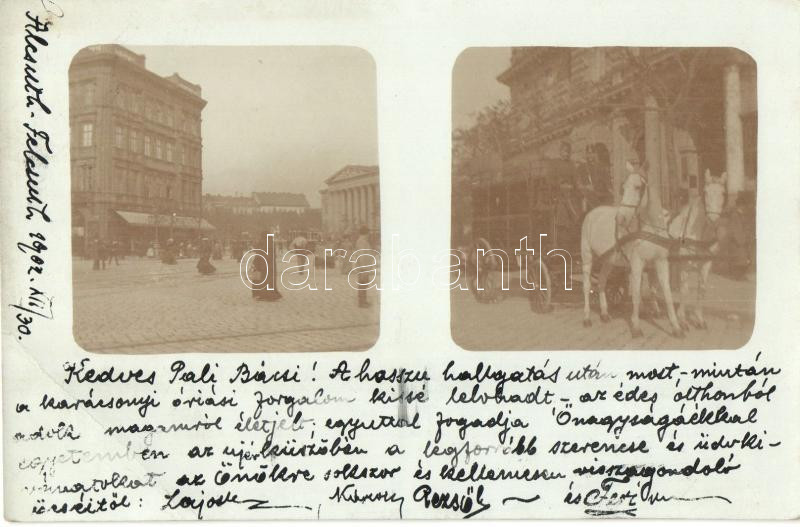 Alcsuth-Felcsuth 1902. XII/30.
darabanth.com
Kedves Pali Bácsi! A hosszu hallgatás után most-mintán
a karácsonyi óriási forgalom kissé lelohadt - az édes otthonból
adok magamról életjelt, egyuttal fogadja Önagyságáékkal
egyetemben az uj év küszöbén a legforróbb szerencse és üdvki-
vánatokat az Önökre sokszor és kellemesen visszagondoló
öcséitől: Lajos Károly Rezső és Feri